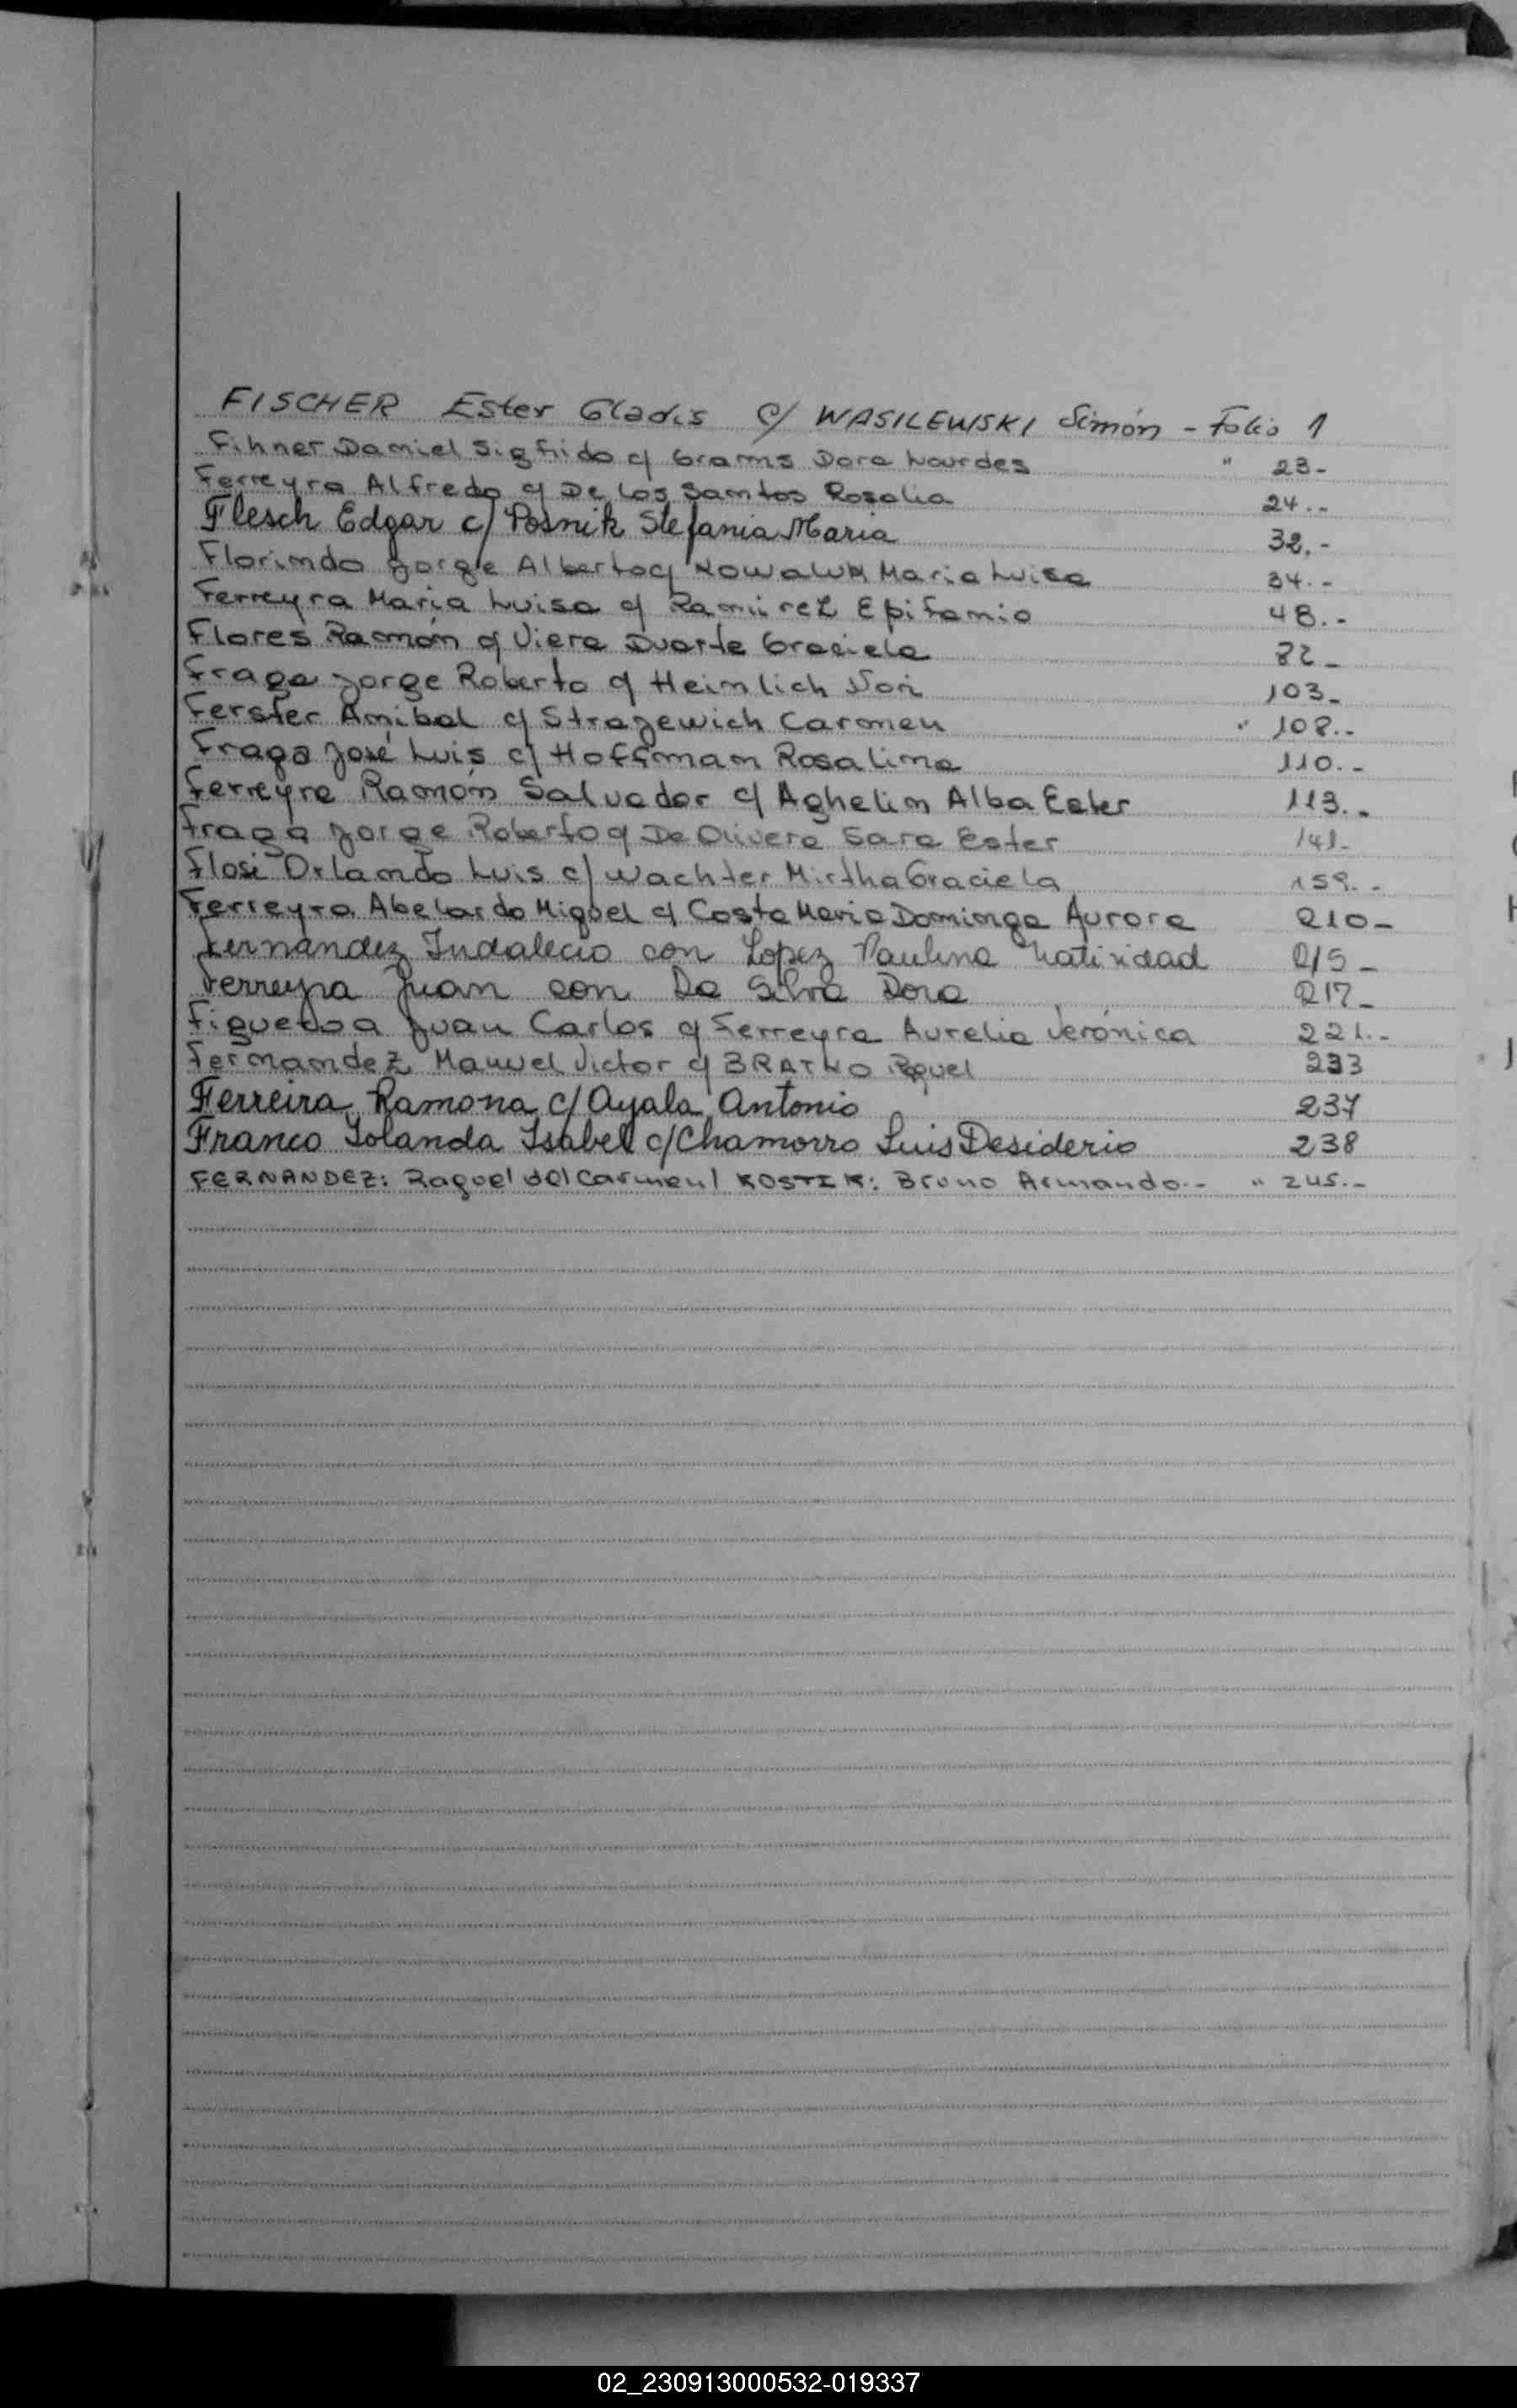 FISCHER Ester Gladis c/ WASILEWSKI Simón - Folio 1
Fihner Daniel Sigfrido c/ Grams Dora Lourdes " 23-
Ferreyra Alfredo c/ De Los Santos Rosalia 24.--
Flesch Edgar c/ Posnik Stefania Maria 32.-
Florindo Jorge Alberto c/ Kowaluk Maria Luisa 34.--
Ferreyra Maria Luisa c/ Ramirez Epifanio 48.--
Flores Ramón c/ Viera Duarte Graciela 82-
Fraga Jorge Roberto c/ Heimlich Nori 103-
Ferster Anibal c/ Strazewich Carmen " 108.--
Fraga José Luis c/ Hoffman Rosalina 110.--
Ferreyra Ramón Salvador c/ Aghelin Alba Ester 113.--
Fraga Jorge Roberto c/ De Olivera Sara Ester 141-
Flosi Orlando Luis c/ Wachter Mirtha Graciela 159.--
Ferreyra Abelardo Miguel c/ Costa Maria Dominga Aurora 210-
Fernandez Indalecio con Lopez Paulina Natividad 215-
Ferreyra Juan con Da Silva Dora 217-
Figueroa Juan Carlos c/ Ferreyra Aurelia Verónica 221.--
Fernandez Manuel Victor c/ Raquel 233
Ferreira Ramona c/ Ayala Antonio 237
Franco Iolanda Isabel c/ Chamorro Luis Desiderio 238
FERNANDEZ: Raquel del Carmen/ KOSTIK: Bruno Armando.- " 245.--
02_230913000532-019337